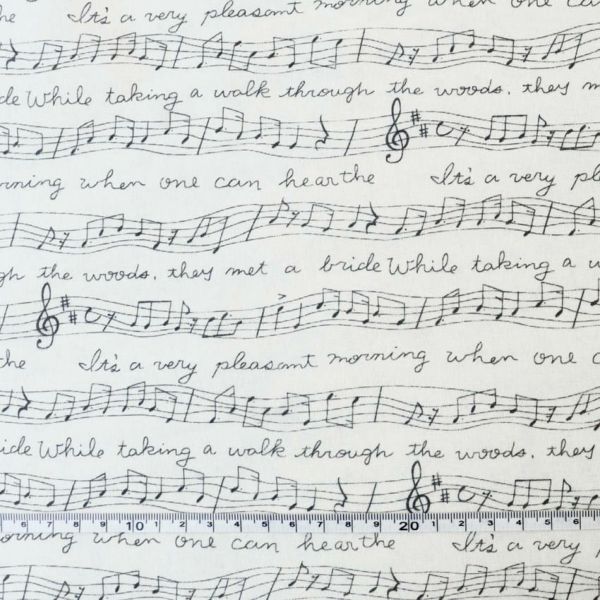 he It's a very pleasant morning when one can
de While taking a walk through the woods, they m
orning when one can hearthe It's a very pl
gh the woods, they met a bride While taking a w
the It's a very pleasant morning when one c
ride While taking a walk through the woods, they
6 7 8 9 10 1 2 3 4 5 6 7 8 9 20 1 2 3 4 5 6
orning when one can hearthe It's a very